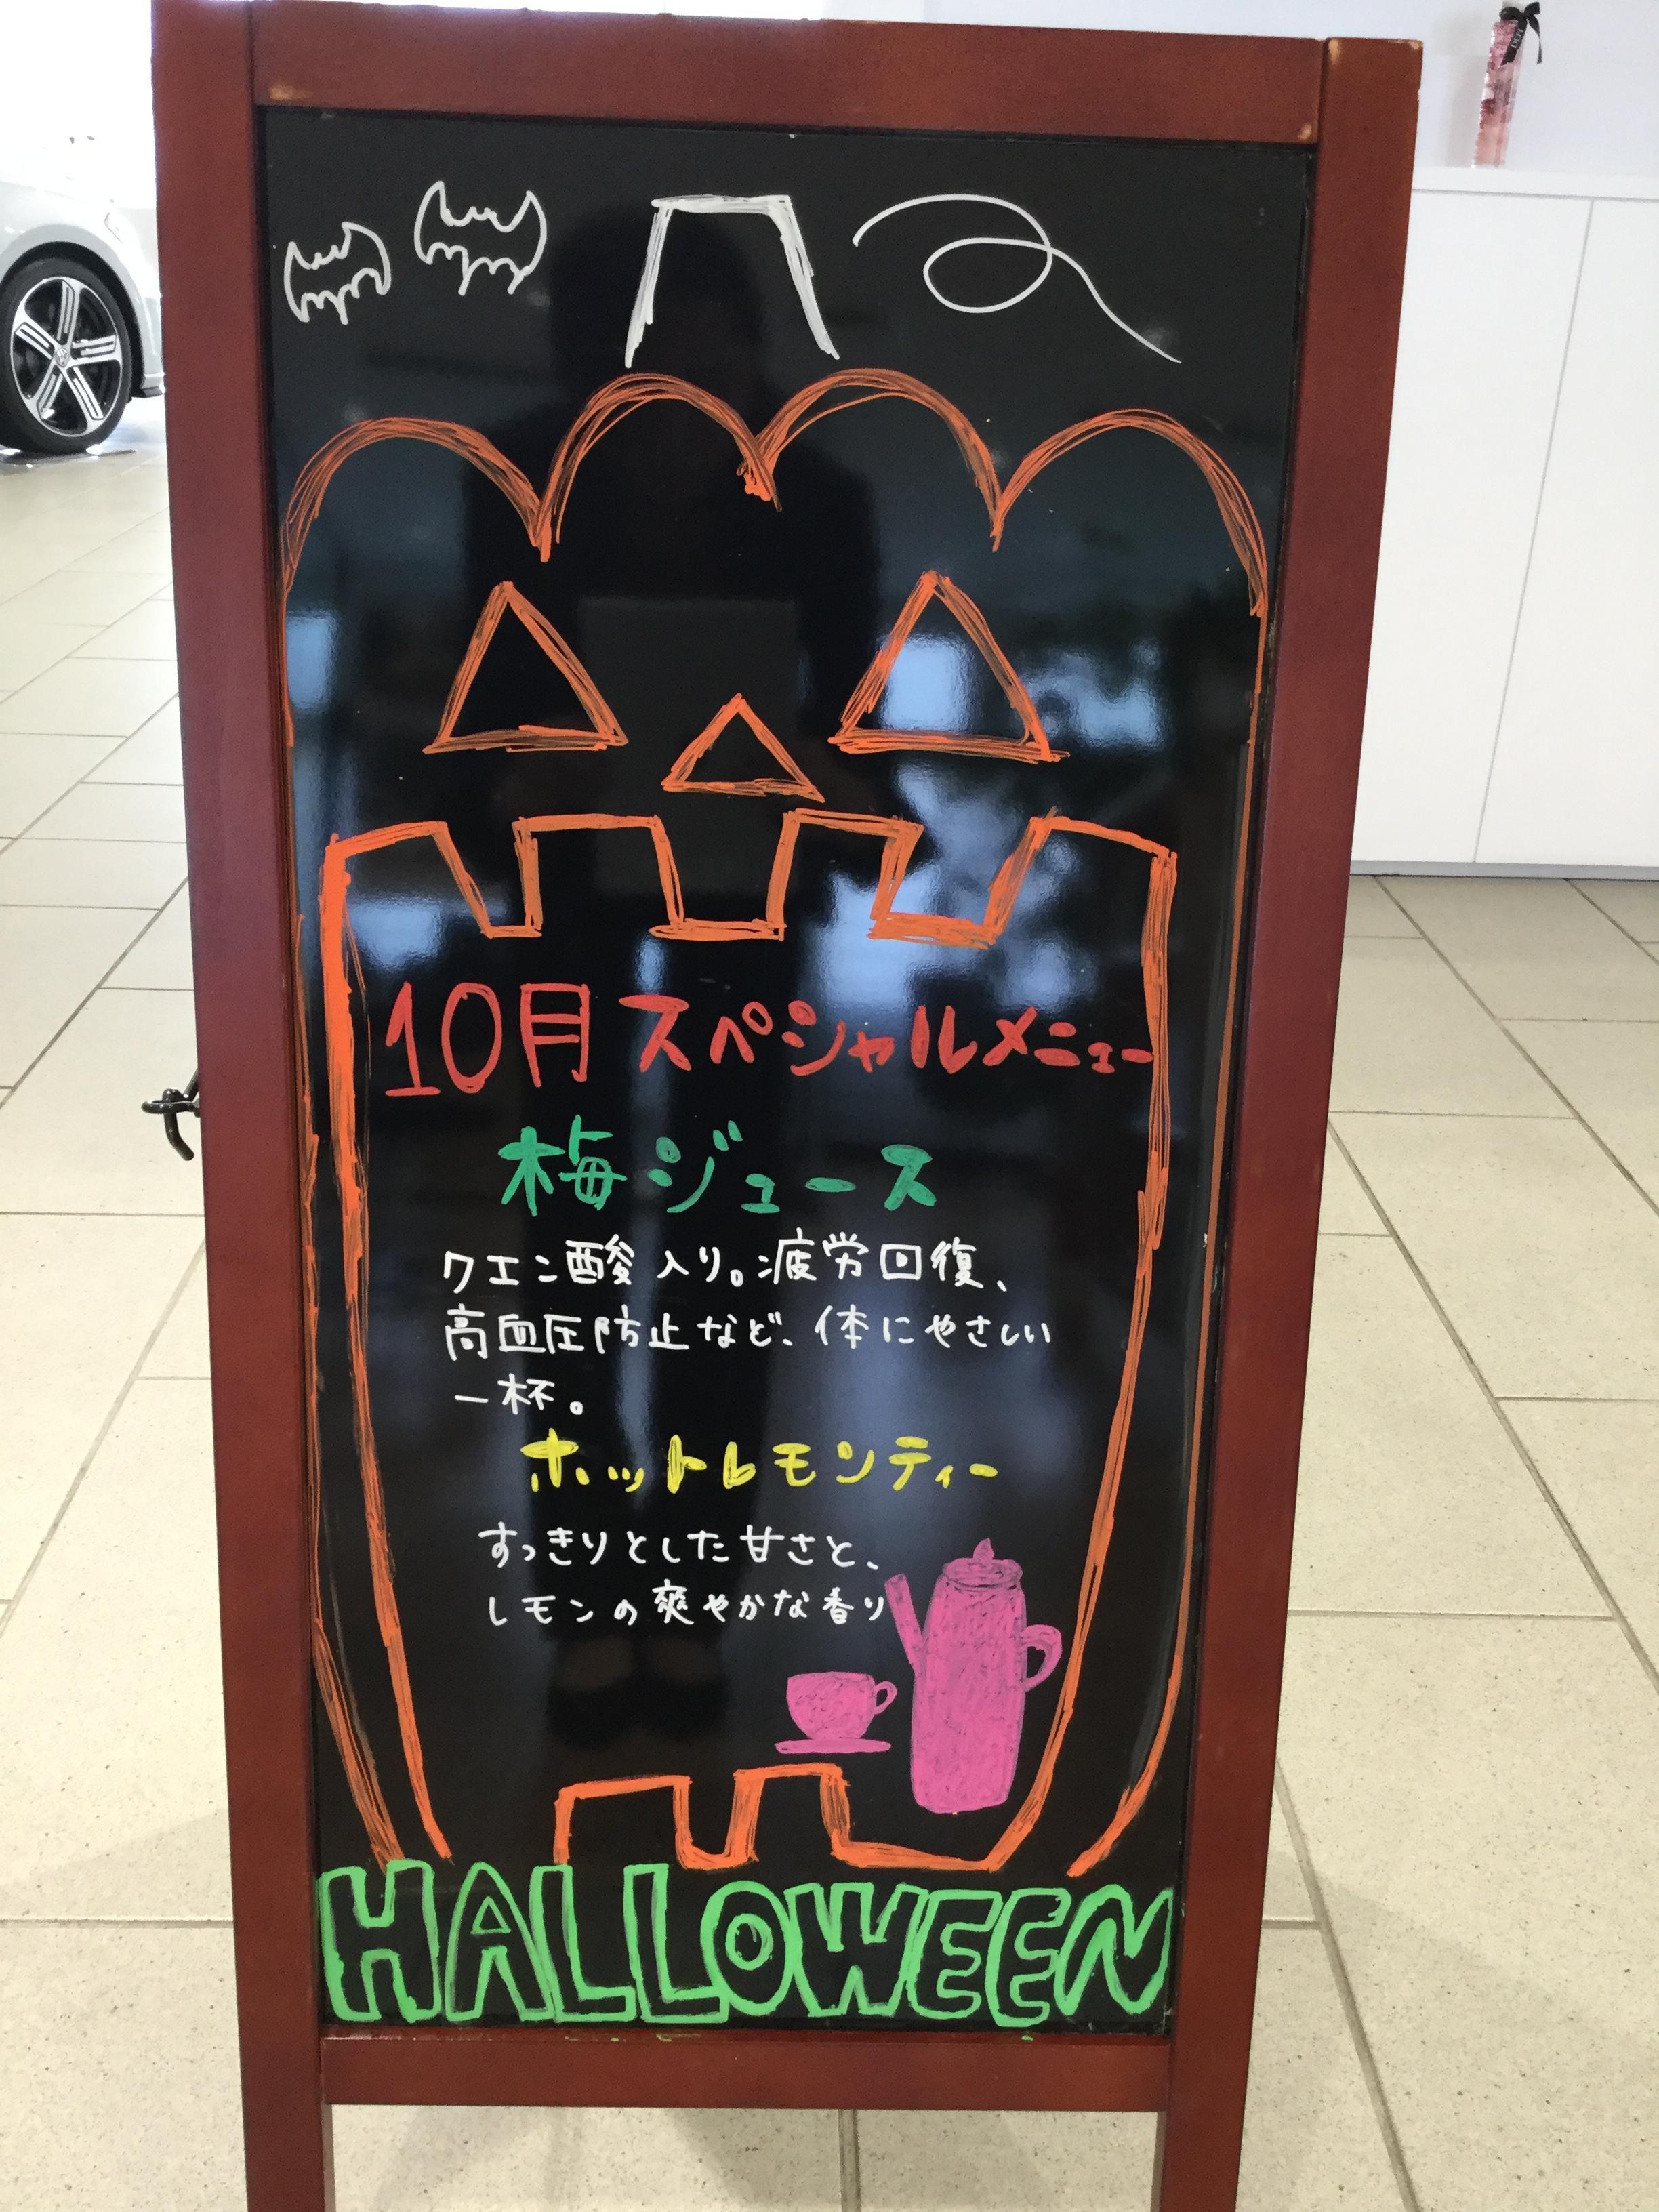 10月スペシャルメニュー
梅ジュース
クエン酸入り。疲労回復、
高血圧防止など、体にやさしい
一杯。
ホットレモンティー
すっきりとした甘さと、
レモンの爽やかな香り
HALLOWEEN